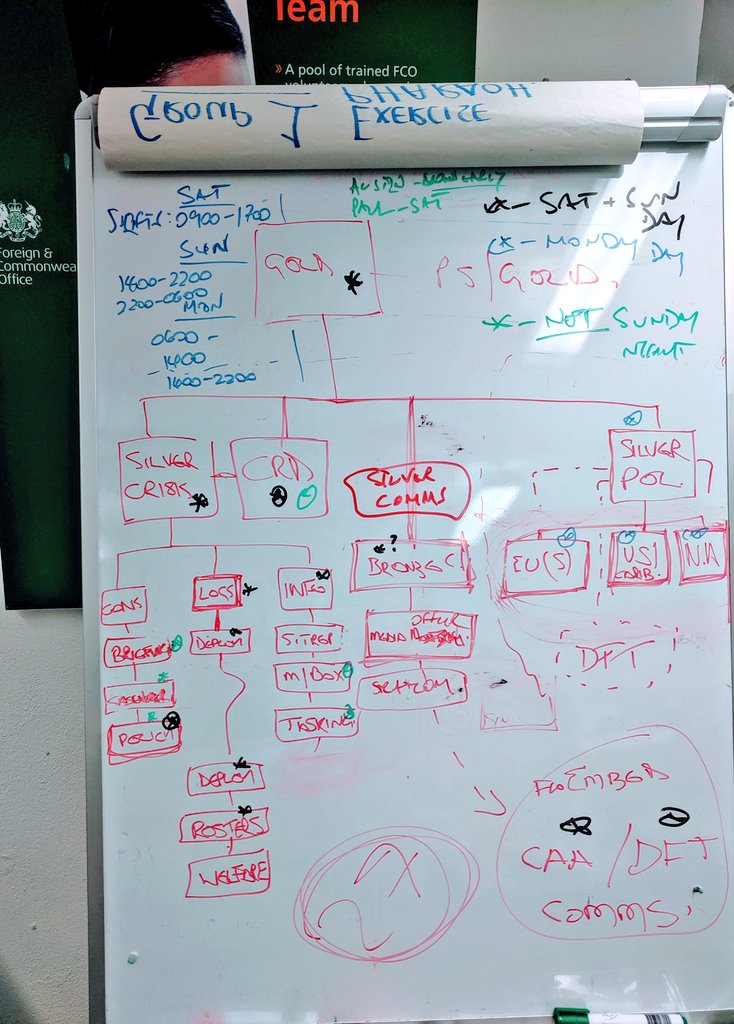 Team
» A pool of trained FCO
Foreign &
Commonwea
Office
GROUP 1 EXERCISE
PHARAOH
SAT
SHIFTS: 0900-1700
SUN
1400-2200
2200-0600
MON
0600-
1400
1400-2200
PAUL-SAT
* - SAT + SUN
DAY
* - MONDY DAY
* - NOT SUNDAY
NIGHT
GOLD
PS/GOLD
SILVER
CRISIS
CRD
SILVER
COMMS
SILVER
POL.
BRONZE C
?
EU(S)
US/
CARIB.
N.A
CONS
LOGS
INFO
DEPLOY
SITREP
M/BOX
TASKING
POLICY
DEPLOY
ROSTERS
WELFARE
DFT
FCO EMBED
CAA/DFT
COMMS.